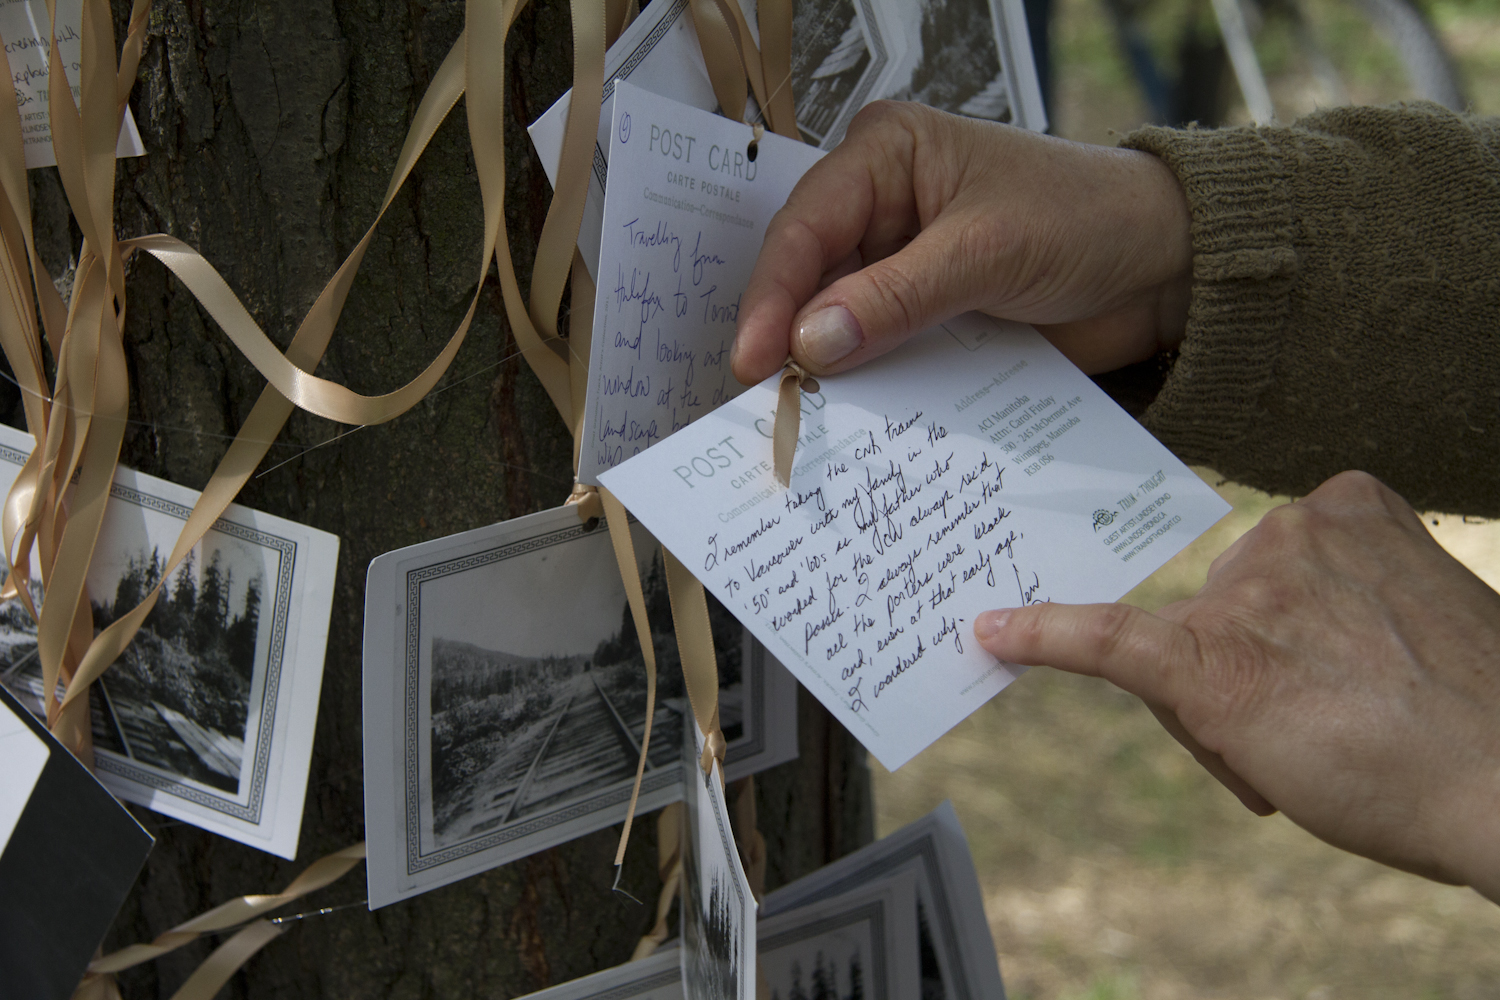 POST CARD
CARTE POSTALE
Communication—Correspondance
Travelling from
Halifax to
and looking out
window at the
landscape
was
POST CARD
CARTE POSTALE
Correspondance
I remember taking the CNR trains
to Vancouver with my family in the
'50s and '60s as my father who
worked for the CN always rec'd
passes. I always remember that
all the porters were black
and, even at that early age,
I wondered why.
Address—Adresse
ACI Manitoba
Attn: Carol Finlay
300 - 245 McDermot Ave
Winnipeg, Manitoba
R3B 0S6
TRAIN of THOUGHT
GUEST ARTIST: LINDSEY BOND
WWW.LINDSEYBOND.CA
WWW.TRAINOFTHOUGHT.CO